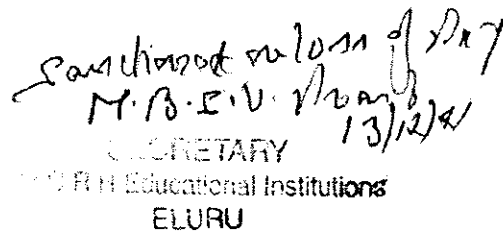 Sanctioned on loss of Pay
M.B.S.V.
13/12/21
SECRETARY
R H Educational Institutions
ELURU